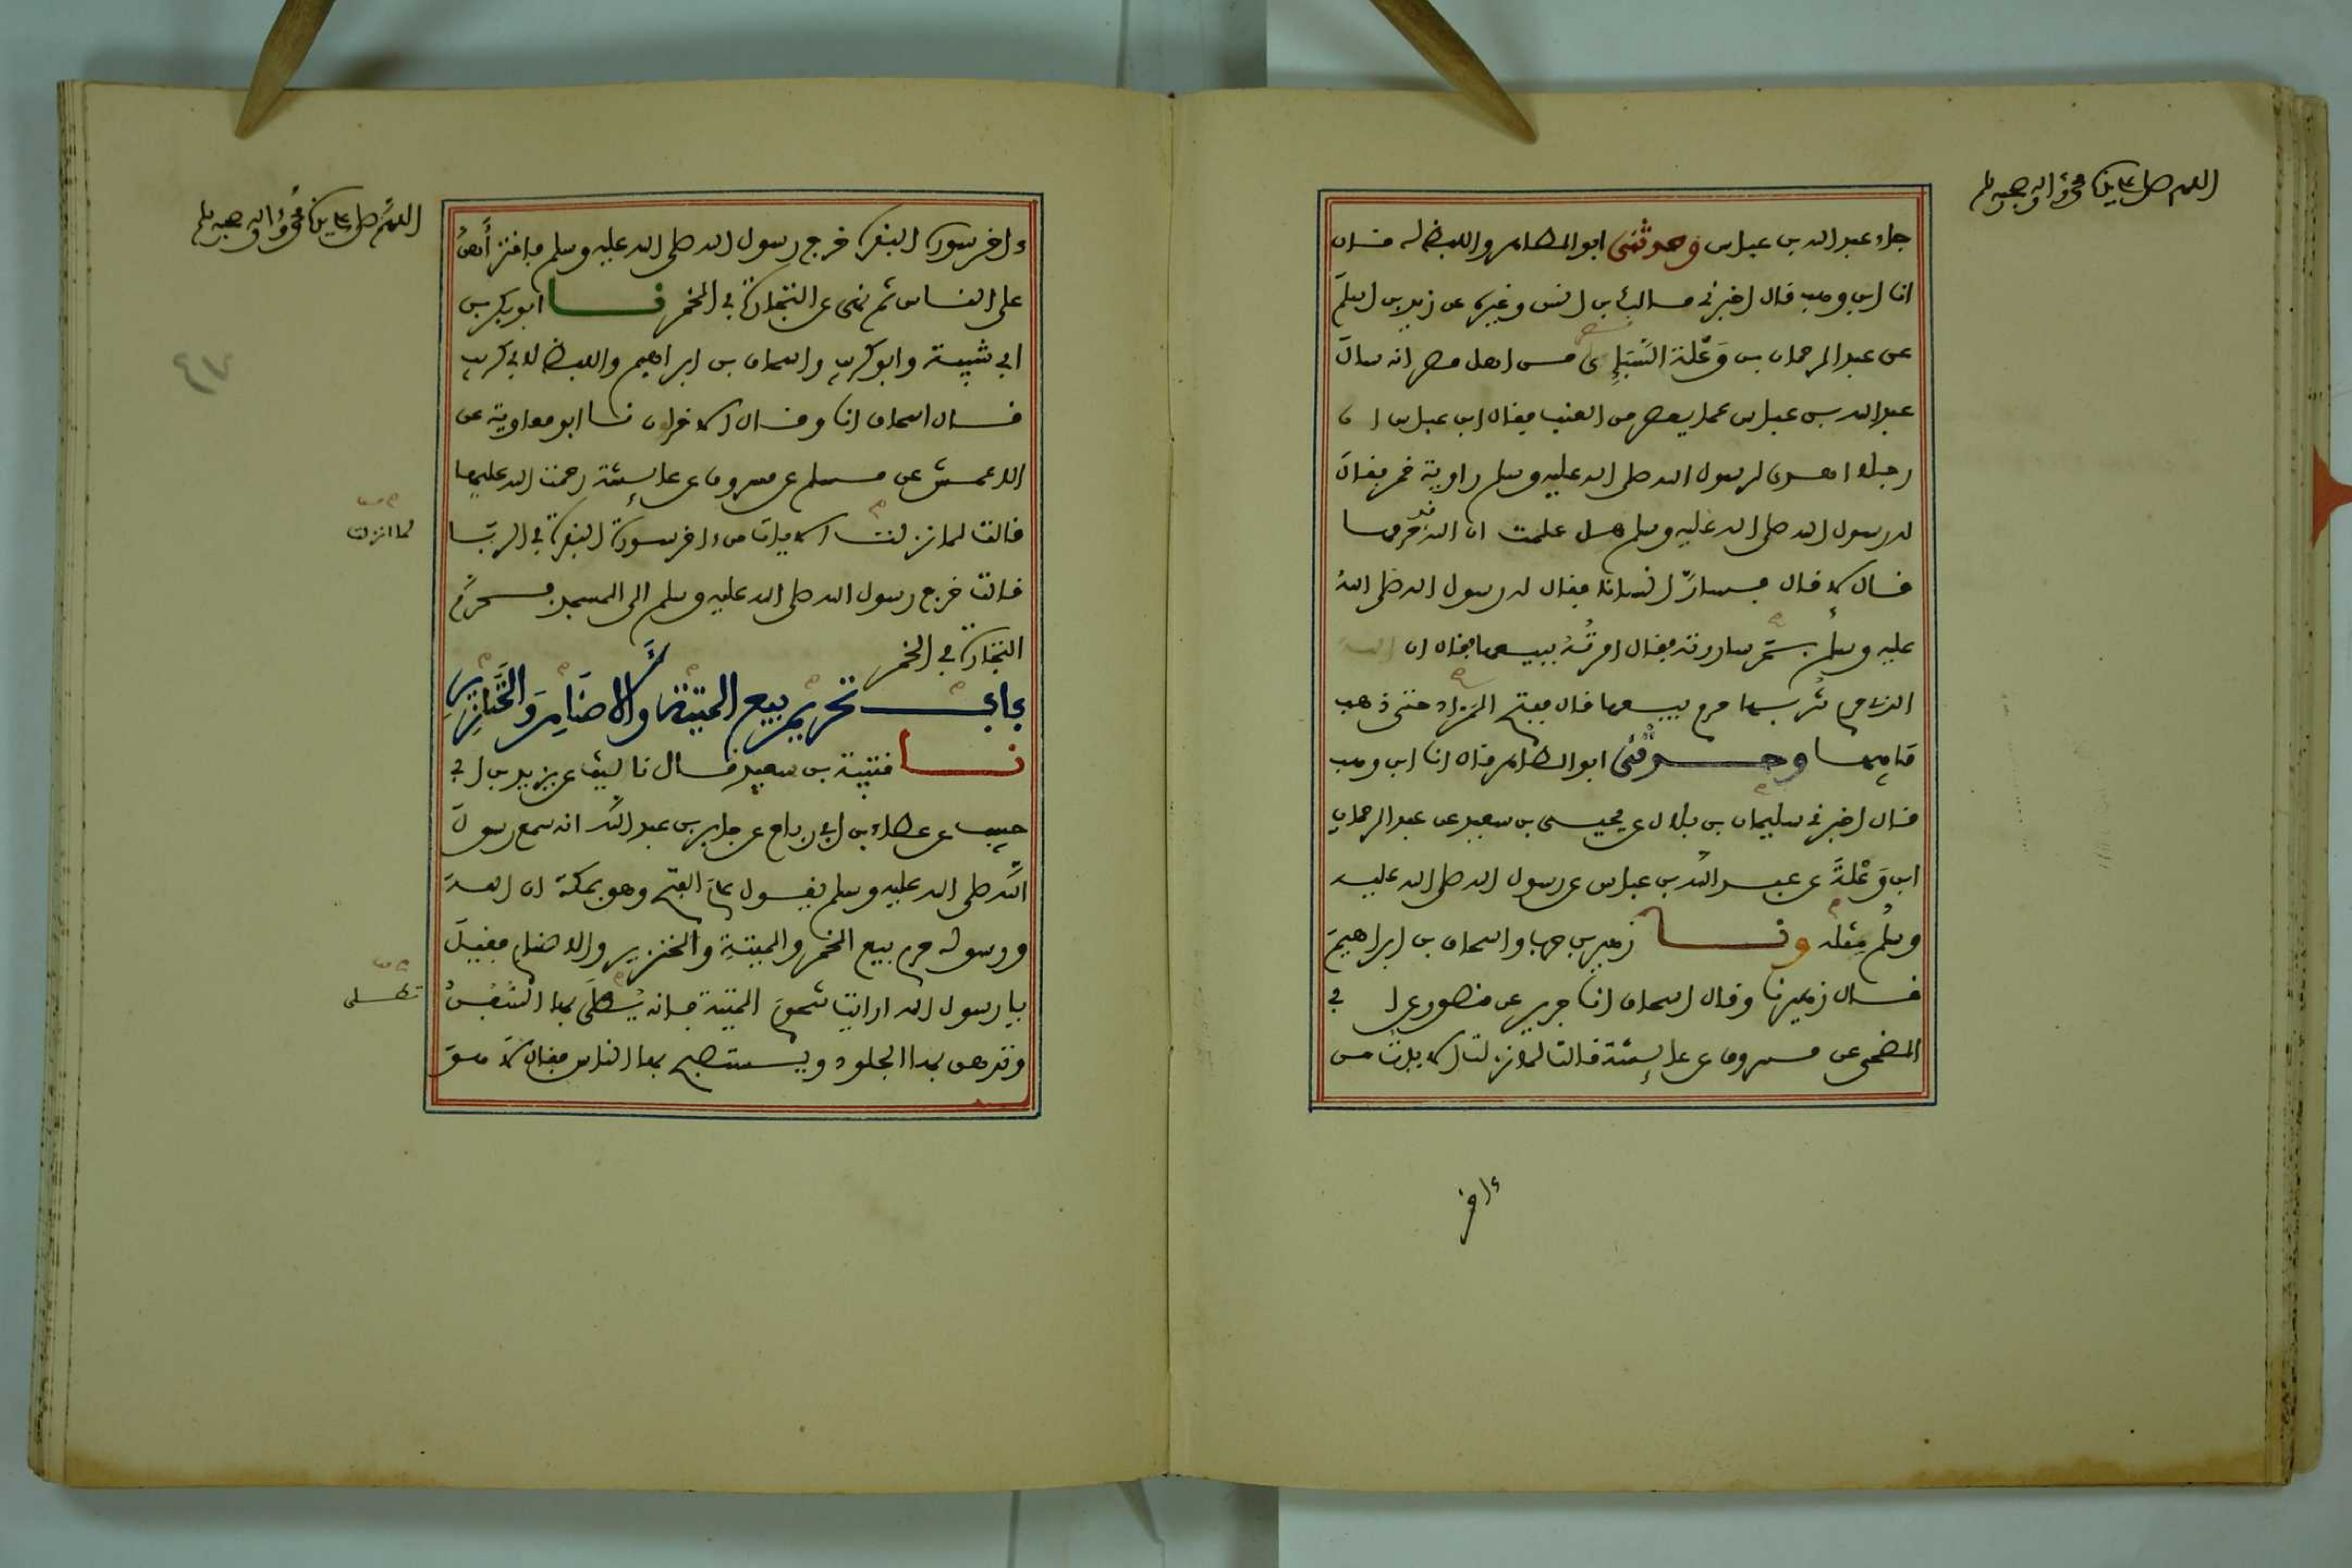 اللهم صل على سيدنا محمد وءاله وصحبه وسلم
جاء عبد الله بن عباس وحدثني ابو الطاهر واللفظ له قال
انا ابن وهب قال اخبرني مالك بن انس وغيره عن زيد بن اسلم
عن عبد الرحمان بن وَعْلة السَّبَإِي من اهل مصر انه سال
عبد الله بن عباس عما يعصر من العنب فقال ابن عباس ان
رجلا اهدى لرسول الله صلى الله عليه وسلم راوية خمر فقال
له رسول الله صلى الله عليه وسلم هل علمت ان الله قد حرمها
قال لا قال فسارّ انسانا فقال له رسول الله صلى الله
عليه وسلم بم ساررته فقال امرتُهُ ببيعها فقال ان
الذي حرم شربها حرم بيعها قال ففتح المزاد حتى ذهب
ما فيها وحدثني ابو الطاهر قال انا ابن وهب
قال اخبرني سليمان بن بلال عن يحيى بن سعيد عن عبد الرحمان
ابن وَعْلَةَ عن عبد الله بن عباس عن رسول الله صلى الله عليه
وسلم مثله ونا زهير بن حرب واسحاق بن ابراهيم
قال زهير نا وقال اسحاق انا جرير عن منصور عن ابي
الضحى عن مسروق عن عايشة قالت لما نزلت الايات من
ءاخر
اللهم صل على سيدنا محمد وءاله وصحبه وسلم
ءاخر سورة البقرة خرج رسول الله صلى الله عليه وسلم فاقترأهن
على الناس ثم نهى عن التجارة في الخمر نا ابو بكر بن
ابي شيبة وابو كريب واسحاق بن ابراهيم واللفظ لابي كريب
قال اسحاق انا وقال الاخران نا ابو معاوية عن
الاعمش عن مسلم عن مسروق عن عايشة رحمت الله عليها
قالت لما نزلت الايات من ءاخر سورة البقرة في الربا
لما انزلت
قالت خرج رسول الله صلى الله عليه وسلم الى المسجد فحرم
التجارة في الخمر
باب تحريم بيع الميتة والاصنام والخنازير
نا قتيبة بن سعيد قال نا ليث عن يزيد بن ابي
حبيب عن عطاء بن ابي رباح عن جابر بن عبد الله انه سمع رسول
الله صلى الله عليه وسلم يقول عام الفتح وهو بمكة ان الله
ورسوله حرم بيع الخمر والميتة والخنزير والاصنام فقيل
يا رسول الله ارايت شحوم الميتة فانه يُطلَى بها السفن
تطلى
وتدهن بها الجلود ويستصبح بها الناس فقال لا هو